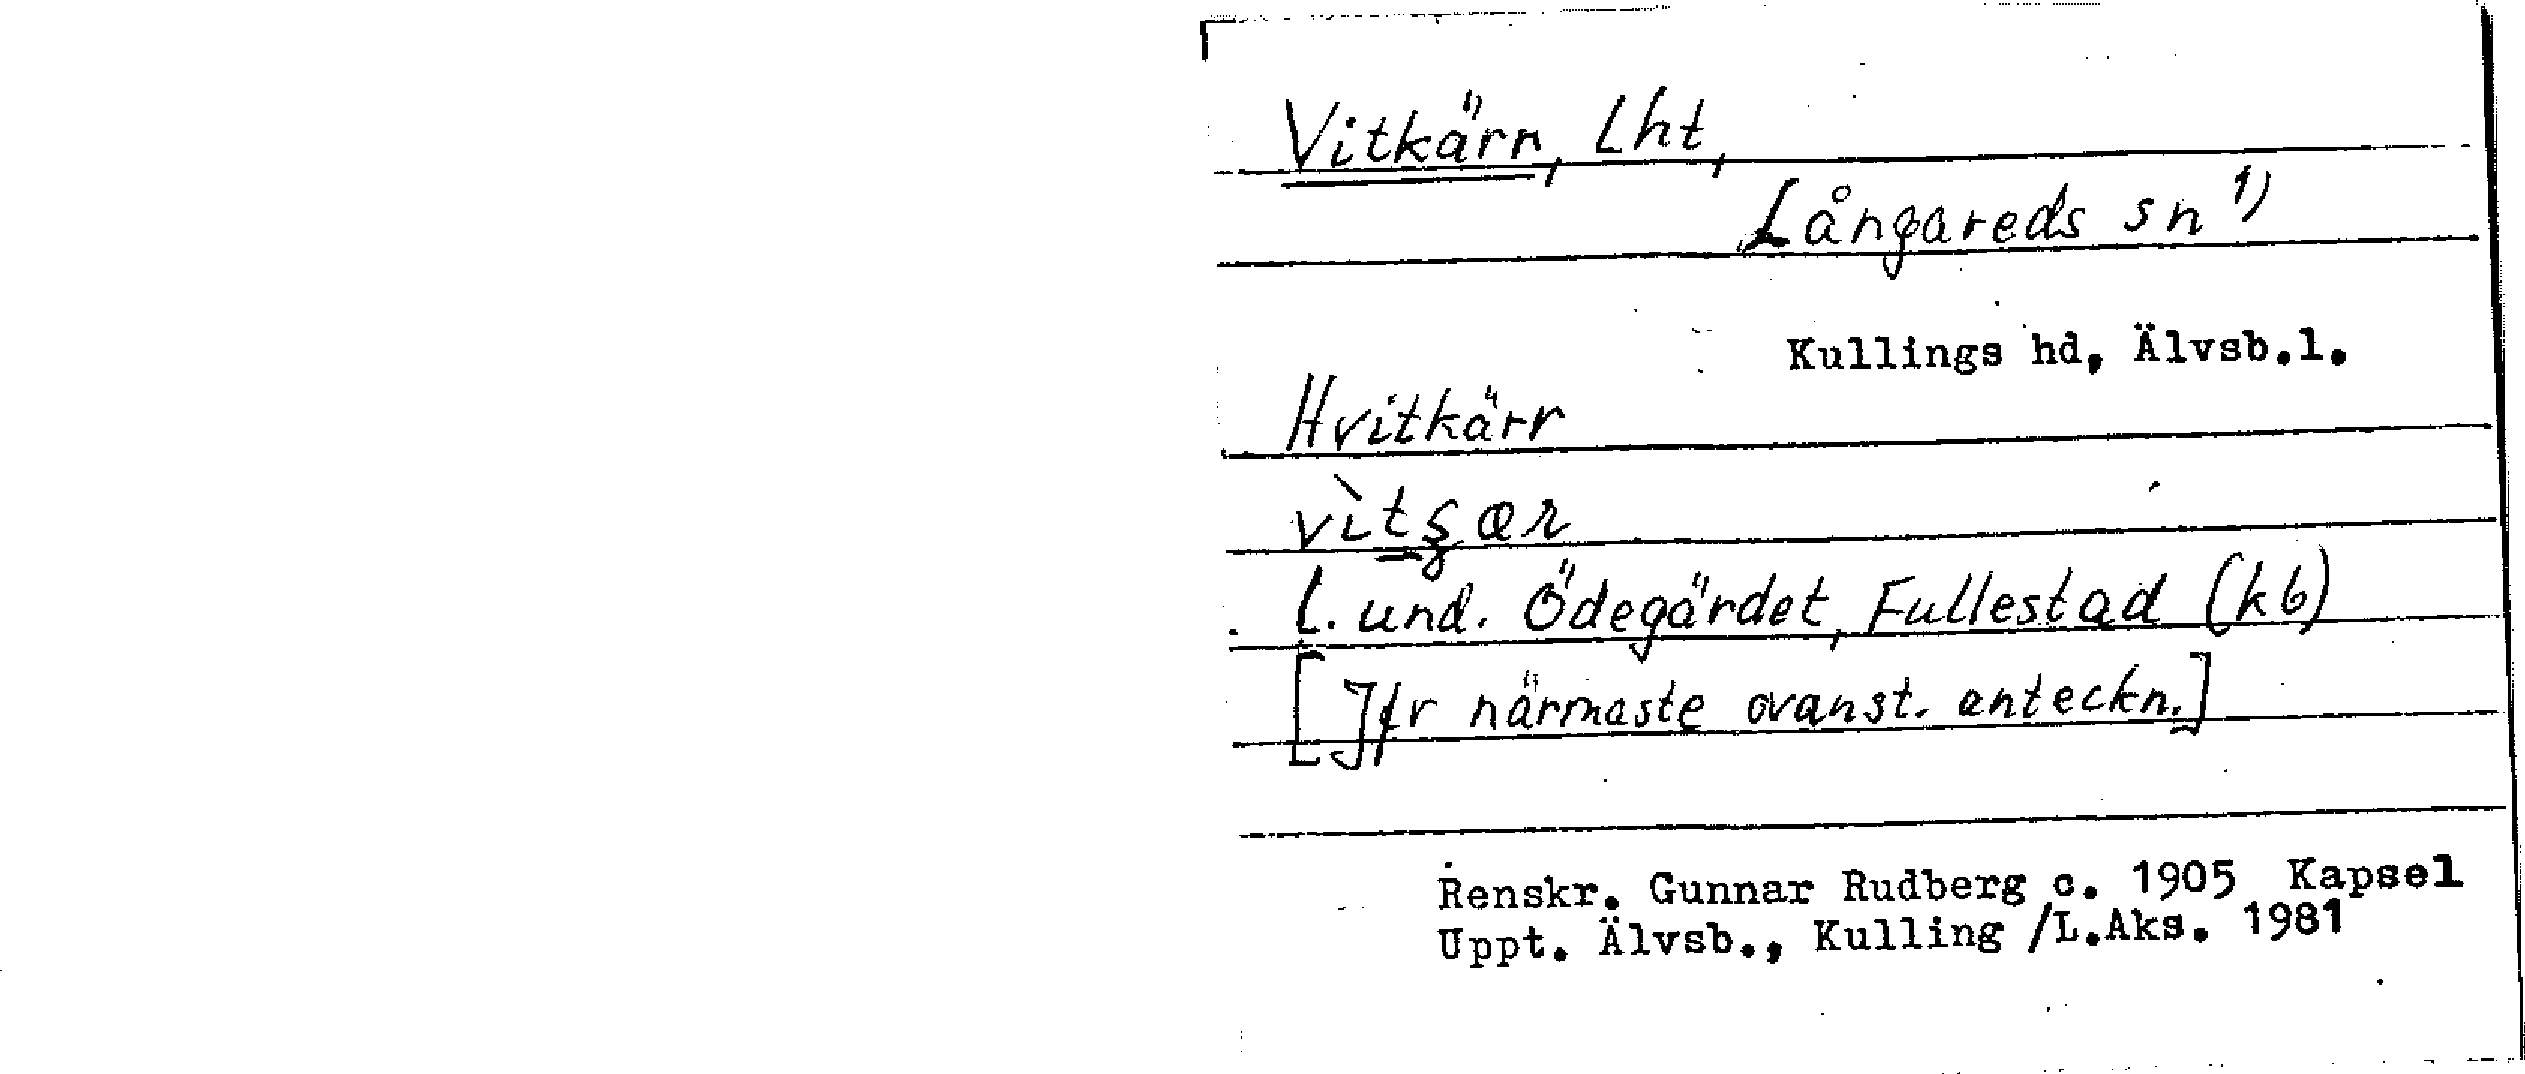 Vitkärr, Lht,
Långareds sn 1)
Kullings hd, Älvsb.l.
Hvitkärr
l. und. Ödegärdet, Fullestad (kb)
[Jfr närmaste ovanst. anteckn.]
Renskr. Gunnar Rudberg c. 1905 Kapsel
Uppt. Älvsb., Kulling /L.Aks. 1981